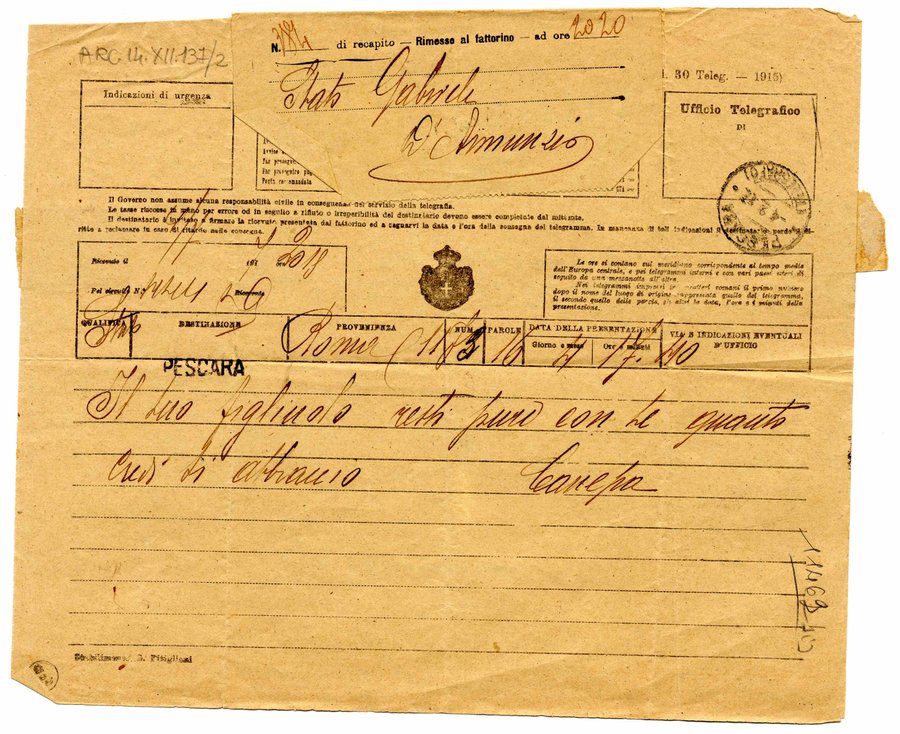 ARC.14.XII.137/2
N. 784 di recapito — Rimesse al fattorino — ad ore 20 20
Stato Gabriele
D'Annunzio
30 Teleg. — 1915)
Indicazioni di urgenza
Ufficio Telegrafico
DI
Il Governo non assume alcuna responsabilità civile in conseguenza del servizio della telegrafia.
Le tasse riscosse in meno per errore od in seguito a rifiuto o irreperibilità del destinatario devono essere completate dal mittente.
Il destinatario è invitato a firmare la ricevuta presentata dal fattorino ed a segnarvi la data e l'ora della consegna del telegramma. In mancanza di tali indicazioni il destinatario perde il di-
ritto a reclamare in caso di ritardo nella consegna.
Ricevuto il
Pel circuito N.
Ricevente
Le ore si contano sul meridiano corrispondente al tempo medio
dell'Europa centrale, e pei telegrammi interni e con vari paesi esteri di
seguito da una mezzanotte all'altra.
Nei telegrammi impressi in caratteri romani il primo numero
dopo il nome del luogo di origine rappresenta quello del telegramma,
il secondo quello delle parole, gli altri la data, l'ora e i minuti della
presentazione.
QUALIFICA DESTINAZIONE PROVENIENZA NUM. PAROLE DATA DELLA PRESENTAZIONE VIA E INDICAZIONI EVENTUALI
Giorno e mese Ore e minuti D'UFFICIO
Stato Roma 16 4 17 40
PESCARA
Il tuo figliuolo resti pure con te quanto
credi ti abbraccio Canepa
Stabilimento G. Pitiglioni